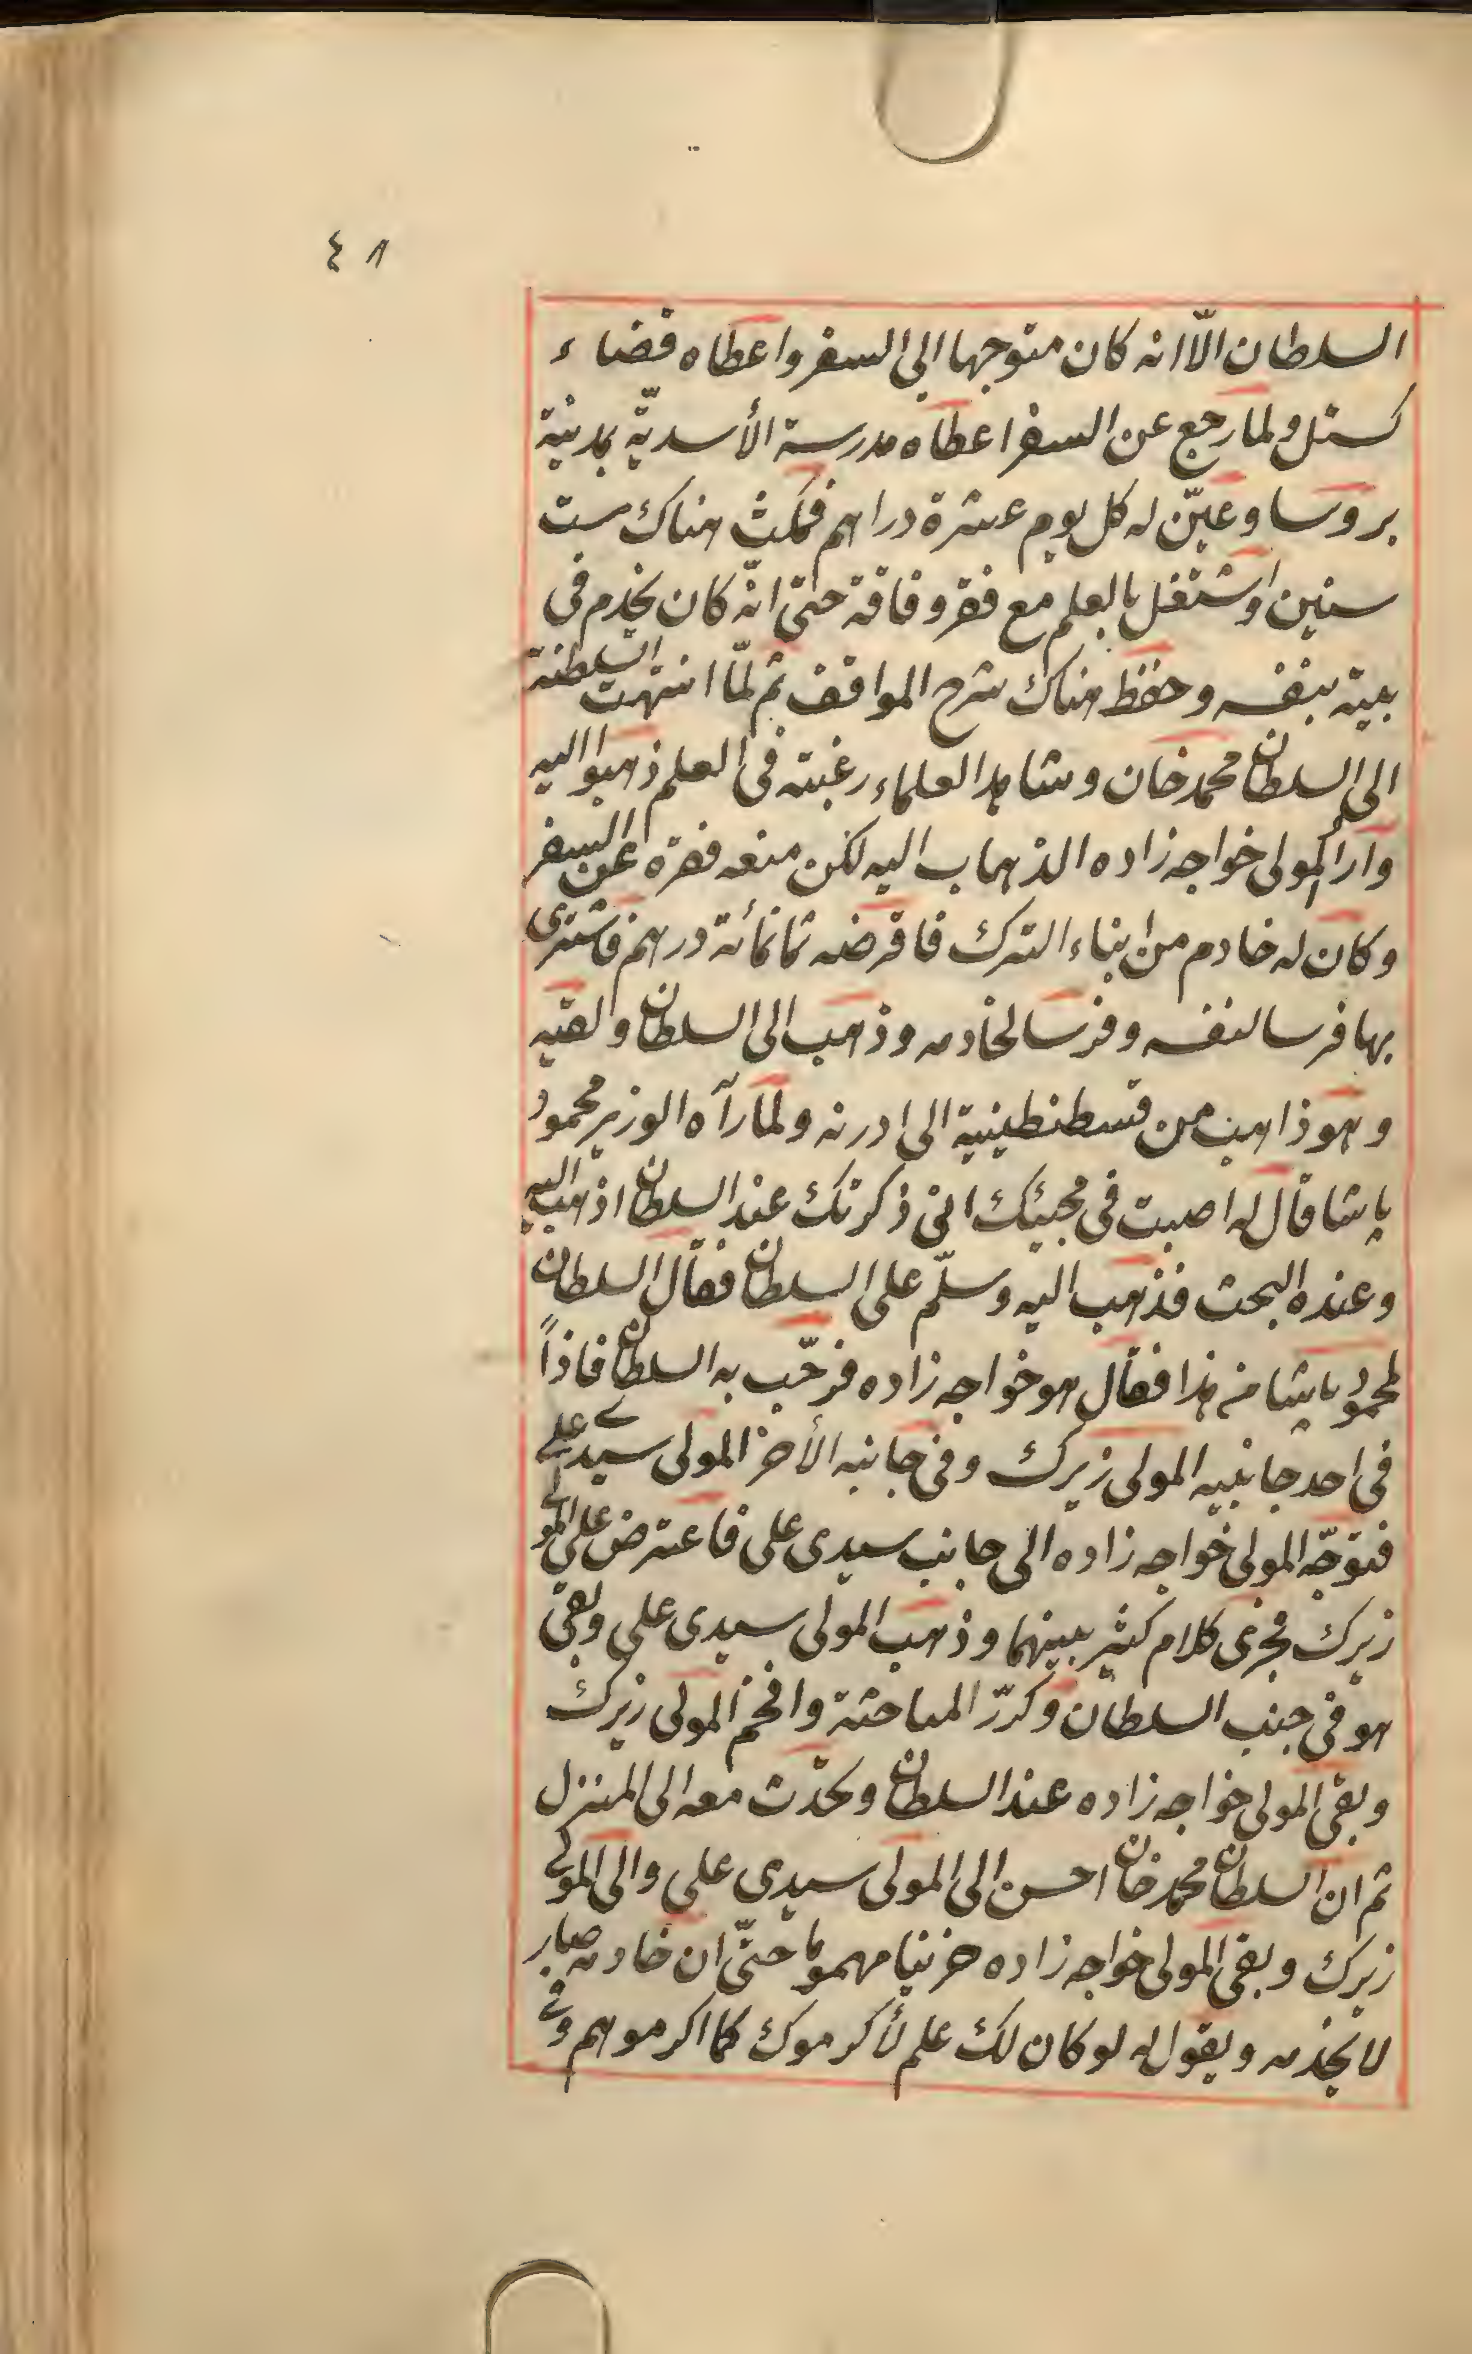 ٤٨
السلطان الّا انه كان متوجها الى السفر واعطاه قضاء
كستل ولما رجع عن السفر اعطاه مدرسة الأسديّة بمدينة
بروسا وعيّن له كل يوم عشرة دراهم فمكث هناك ست
سنين واشتغل بالعلم مع فقر وفاقة حتى انّه كان يخدم فى
بيته بنفسه وحفظ هناك شرح المواقف ثم لمّا انتهت السلطنة
الى السلطان محمد خان وشاهد العلماء رغبته فى العلم ذهبوا اليه
واراد المولى خواجه زاده الذهاب اليه لكن منعه فقره عن السفر
وكان له خادم من ابناء الترك فاقرضه ثمانمائة درهم فاشترى
بها فرسا لنفسه وفرسا لخادمه وذهب الى السلطان ولقيه
وهو ذاهب من قسطنطينية الى ادرنه ولما رآه الوزير محمود
پاشا قال له اصبت فى مجيئك انى ذكرتك عند السلطان اذهب اليه
وعنده البحث فذهب اليه وسلّم على السلطان فقال السلطان
لمحمود پاشا من هذا فقال هو خواجه زاده فرحّب به السلطان فاذاً
فى احد جانبيه المولى زيرك وفى جانبه الأخر المولى سيدى على
فتوجّه المولى خواجه زاده الى جانب سيدى على فاعترض على المولى
زيرك فجرى كلام كثير بينهما وذهب المولى سيدى على وبقى
هو فى جنب السلطان وكرّر المباحثة وافحم المولى زيرك
وبقى المولى خواجه زاده عند السلطان وتحدّث معه الى المنزل
ثم ان السلطان محمد خان احسن الى المولى سيدى على والى المولى
زيرك وبقى المولى خواجه زاده حزينا مهموما حتّى ان خادمه صار
لا يخدمه ويقول له لو كان لك علم لأكرموك كما اكرموهم وفى